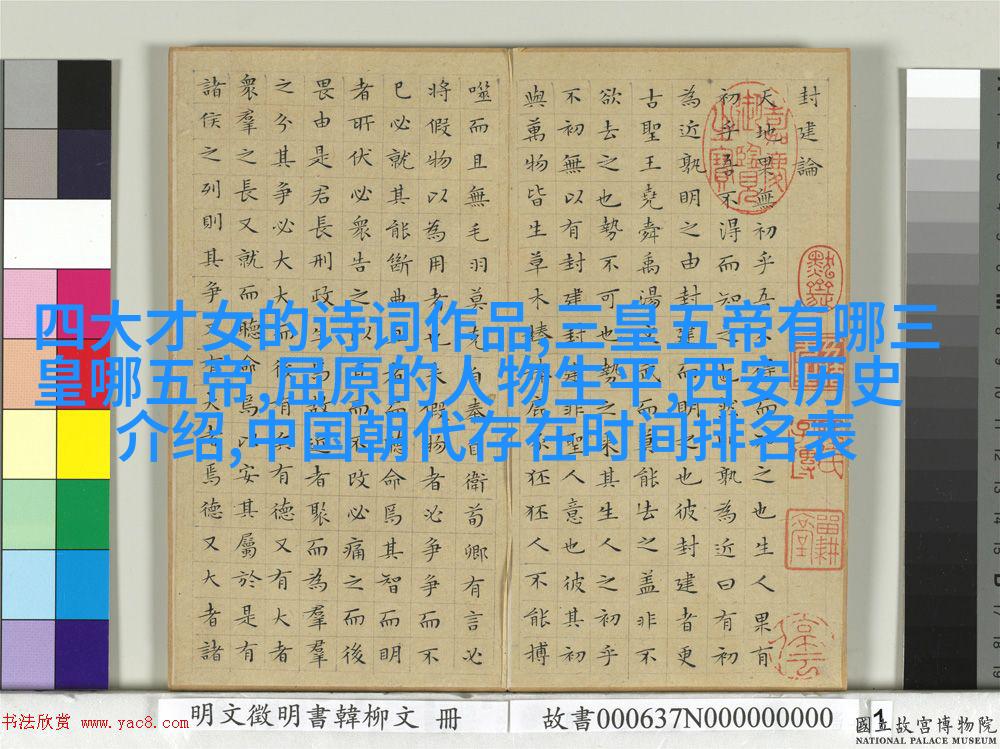 四大才女的诗词作品,三皇五帝有哪三
皇哪五帝,屈原的人物生平,西安历史
介绍,中国朝代存在时间排名表
封建論
天地果無初乎吾不得而知之也生人果有
初乎吾不得而知之也然則孰為近曰有初
為近孰明之由封建而明之也彼封建者更
古聖王堯舜禹湯文武而莫能去之蓋非不
欲去之也勢不可也勢之來其生人之初乎
不初無以有封建封建非聖人意也彼其初
與萬物皆生草木榛榛鹿豕狉狉人不能搏
噬而且無毛羽莫克自奉自衛荀卿有言必
將假物以為用者也夫假物者必爭爭而不
已必就其能斷曲直者而聽命焉其智而明
者所伏必衆告之以直而不改必痛之而後
畏由是君長刑政生焉故近者聚而為羣
之分其爭必大大而後有兵有德又有大者
衆羣之長又就而聽命焉以安其屬於是有
諸侯之列則其爭又有大者焉德又大者諸
明文徵明書韓柳文 冊
故書000637N000000000
1
國立故宮博物院
NATIONAL PALACE MUSEUM
书法欣赏 www.yac8.com